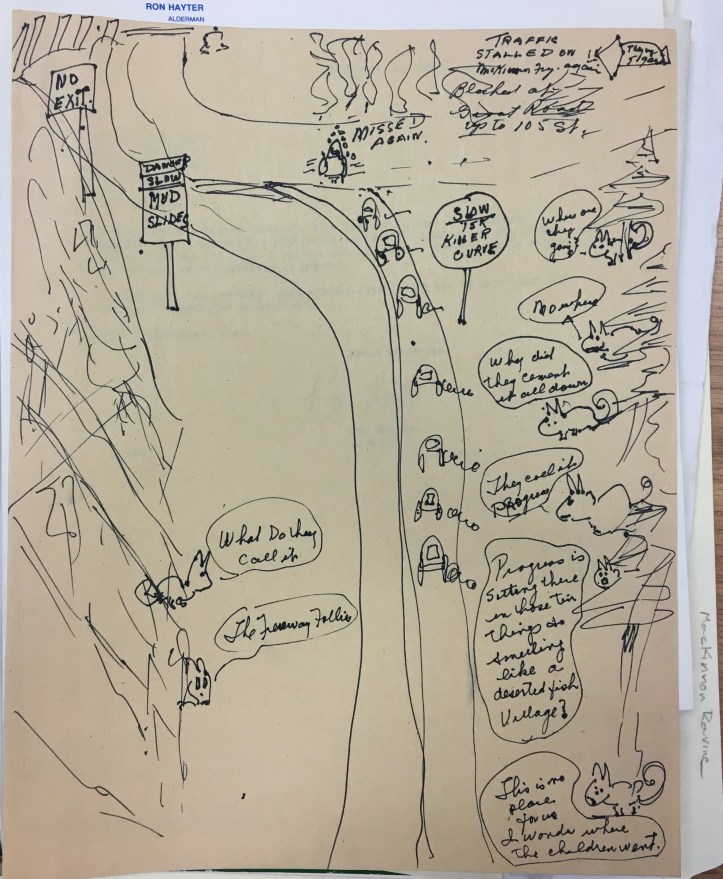 RON HAYTER
ALDERMAN
TRAFFIC
STALLED ON
MacKinnon Fry. again
Blocked at
Great Road
up to 105 St.
NO
EXIT
MISSED
AGAIN.
DANGER
SLOW
MUD
SLIDES
SLOW
KILLER
CURVE
Where are
they
going?
No where
Why did
they cement
it all down
They call it
Progress
What Do they
call it
The Freeway Follies
Progress is
sitting there
in those tin
things so
smelling
like a
deserted fish
Village?
This is no
place
for us
I wonder where
The children went.
MacKinnon Ravine